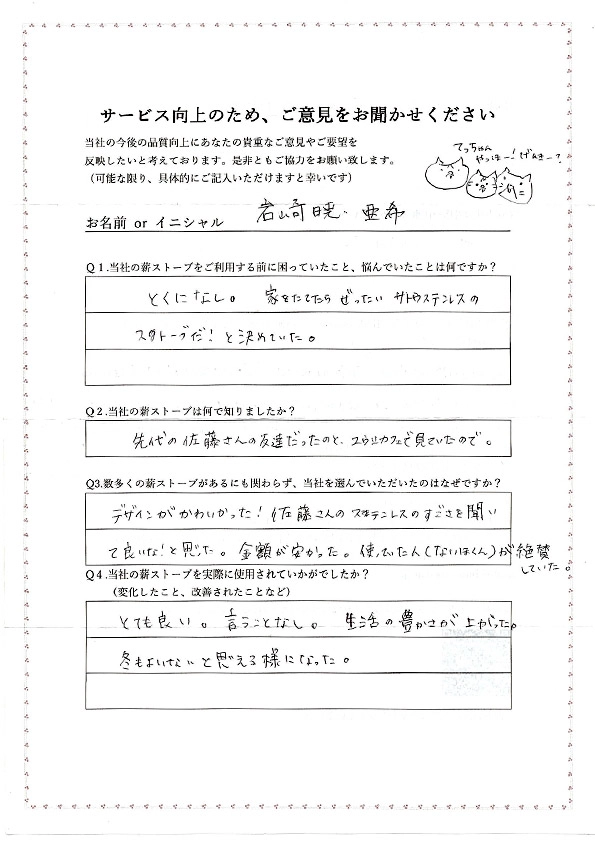 サービス向上のため、ご意見をお聞かせください
当社の今後の品質向上にあなたの貴重なご意見やご要望を
反映したいと考えております。是非ともご協力をお願い致します。
（可能な限り、具体的にご記入いただけますと幸いです）
てっちゃん
やっほー！げんきー？
お名前 or イニシャル 岩崎 暁 亜希
Q１.当社の薪ストーブをご利用する前に困っていたこと、悩んでいたことは何ですか？
とくになし。 家をたてたら ぜったい サトウステンレスの
ストーブだ！と決めていた。
Q２.当社の薪ストーブは何で知りましたか？
先代の佐藤さんの友達だったのと、カフェで見ていたので。
Q3.数多くの薪ストーブがあるにも関わらず、当社を選んでいただいたのはなぜですか？
デザインがかわいかった！佐藤さんのステンレスのすごさを聞い
て良いな！と思った。金額が安かった。使っていた人（ないほくん）が絶賛
していた。
Q４.当社の薪ストーブを実際に使用されていかがでしたか？
（変化したこと、改善されたことなど）
とても良い。言うことなし。 生活の豊かさが上がった。
冬もよいなぁと思える様になった。